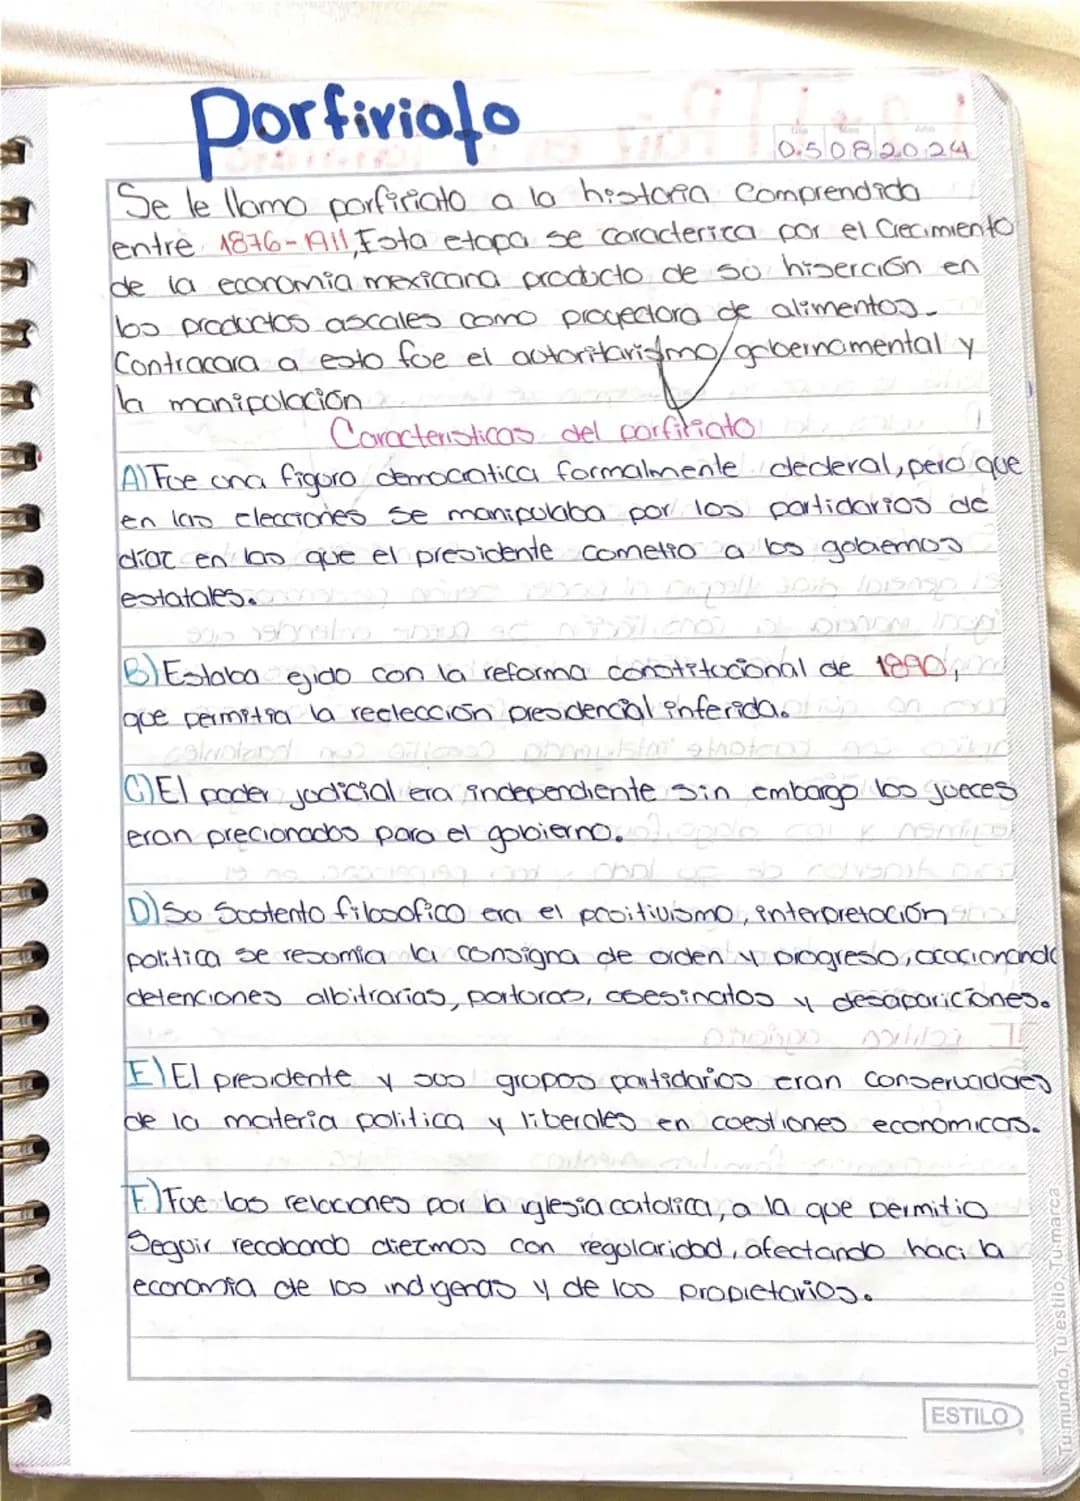 Porfiriato
Día Mes Año
05082024
Se le llamo porfiriato a la historia comprendida
entre 1876-1911, Esta etapa se caracteriza por el Crecimiento
de la economia mexicana producto de su hiserción en
los productos ascales como proyectora de alimentos.
Contracara a esto fue el autoritarismo/gobernamental y
la manipulación
Caracteristicas del porfiriato
A) Fue una figura democratica formalmente dederal, pero que
en las elecciones se manipulaba por los partidarios de
díaz en las que el presidente cometio a los gobiernos
estatales.
B) Estaba egido con la reforma constitucional de 1890,
que permitia la reelección presidencial inferida.
C) El poder judicial era independiente sin embargo los jueces
eran precionados para el gobierno.
D) Su sustento filosofico era el positivismo, interpretación
politica se resumia la consigna de orden y progreso, ocacionando
detenciones albitrarias, porturas, asesinatos y desapariciones.
E) El presidente y sus grupos partidarios eran conservadores
de la materia politica y liberales en cuestiones economicas.
F) Fue las relaciones por la iglesia catolica, a la que permitio
Seguir recabando diezmos con regularidad, afectando haci la
economia de los indigenas y de los propietarios.
ESTILO
Tu mundo, Tu estilo, Tu marca